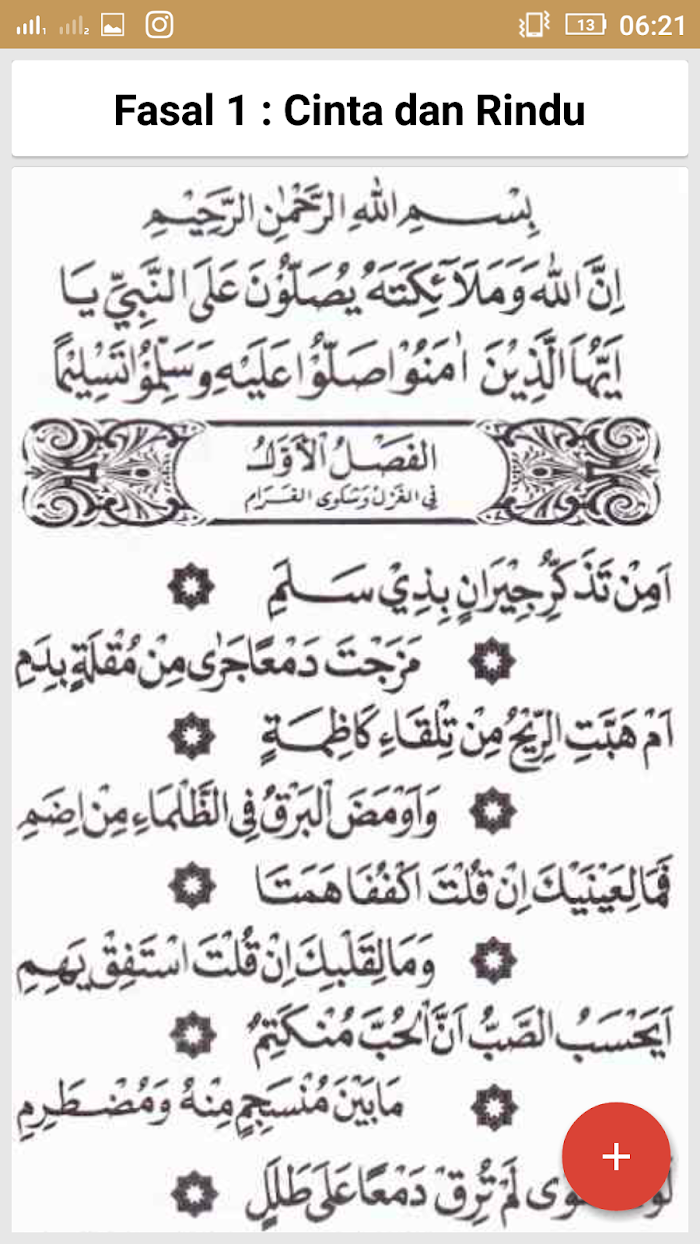 06:21
13
Fasal 1 : Cinta dan Rindu
بِسْمِ اللهِ الرَّحْمٰنِ الرَّحِيْمِ
اِنَّ اللهَ وَمَلَآئِكَتَهُ يُصَلُّوْنَ عَلَى النَّبِيِّ يَا
اَيُّهَا الَّذِيْنَ اٰمَنُوْا صَلُّوْا عَلَيْهِ وَسَلِّمُوْا تَسْلِيْمًا
الفَصْلُ الْأَوَّلُ
فِي الغَزَلِ وَشَكْوَى الغَرَامِ
اَمِنْ تَذَكُّرِ جِيْرَانٍ بِذِيْ سَلَمِ
مَزَجْتَ دَمْعًا جَرٰى مِنْ مُقْلَةٍ بِدَمِ
اَمْ هَبَّتِ الرِّيْحُ مِنْ تِلْقَاءِ كَاظِمَةٍ
وَاَوْمَضَ الْبَرْقُ فِى الظَّلْمَاءِ مِنْ اِضَمِ
فَمَا لِعَيْنَيْكَ اِنْ قُلْتَ اكْفُفَا هَمَتَا
وَمَا لِقَلْبِكَ اِنْ قُلْتَ اسْتَفِقْ يَهِمِ
اَيَحْسَبُ الصَّبُّ اَنَّ الْحُبَّ مُنْكَتِمٌ
مَا بَيْنَ مُنْسَجِمٍ مِنْهُ وَمُضْطَرِمِ
لَمْ تُرِقْ دَمْعًا عَلَى طَلَلٍ